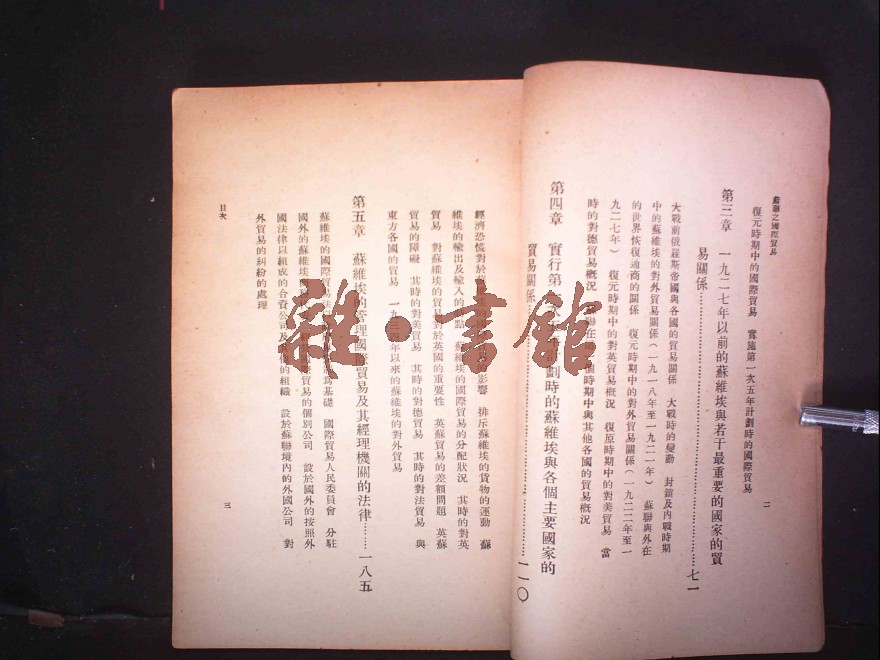 蘇聯之國際貿易
二
復元時期中的國際貿易 實施第一次五年計劃時的國際貿易
第三章 一九二七年以前的蘇維埃與若干最重要的國家的貿
易關係……………………七一
大戰前俄羅斯帝國與各國的貿易關係 大戰時的變動 封鎖及內戰時期
中的蘇維埃的對外貿易關係(一九一八年至一九二一年) 蘇聯與外在
的世界恢復通商的關係 復元時期中的對外貿易關係(一九二二年至一
九二七年) 復元時期中的對英貿易概況 復原時期中的對美貿易 當
時的對德貿易概況 聯在 個時期中與其他各國的貿易概況
第四章 實行第 計劃時的蘇維埃與各個主要國家的
貿易關係……………………一一〇
經濟恐慌對於 的影響 排斥蘇維埃的貨物的運動 蘇
維埃的輸出及輸入的 點 蘇維埃的國際貿易的分配狀況 其時的對英
貿易 對蘇維埃的貿易對於英國的重要性 英蘇貿易的差額問題 英蘇
貿易的障礙 其時的對美貿易 其時的對德貿易 其時的對法貿易 與
東方各國的貿易 一九三四年以來的蘇維埃的對外貿易
第五章 蘇維埃的管理國際貿易及其經理機關的法律……一八五
蘇維埃的國際貿易法 為基礎 國際貿易人民委員會 分駐
國外的蘇維埃 際貿易的個別公司 設於國外的按照外
國法律以組成的合資公司及 的組織 設於蘇聯境內的外國公司 對
外貿易的糾紛的處理
目次
三
雜·書館